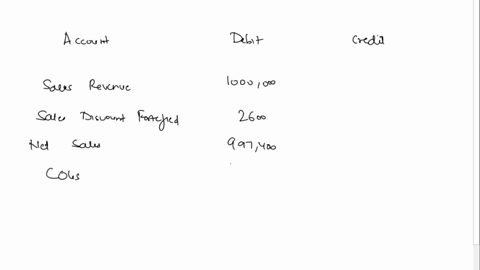 Account Debit Credit
Sales Revenue 1000,000
Sales Discount Forefeited 2600
Net Sales 997,400
COGS